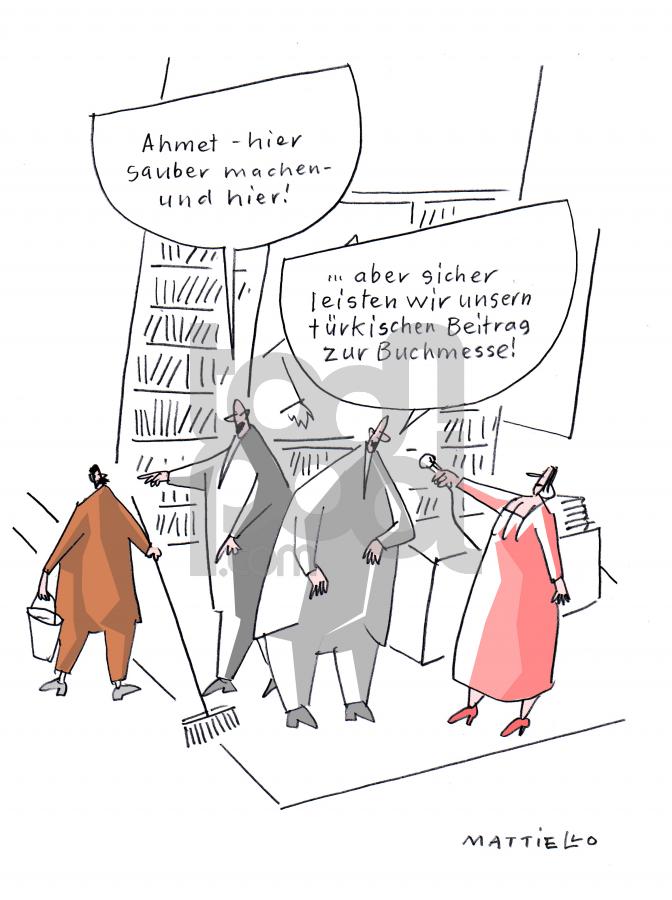 Ahmet - hier
sauber machen -
und hier!
... aber sicher
leisten wir unsern
türkischen Beitrag
zur Buchmesse!
toonpool
.com
MATTIELLO